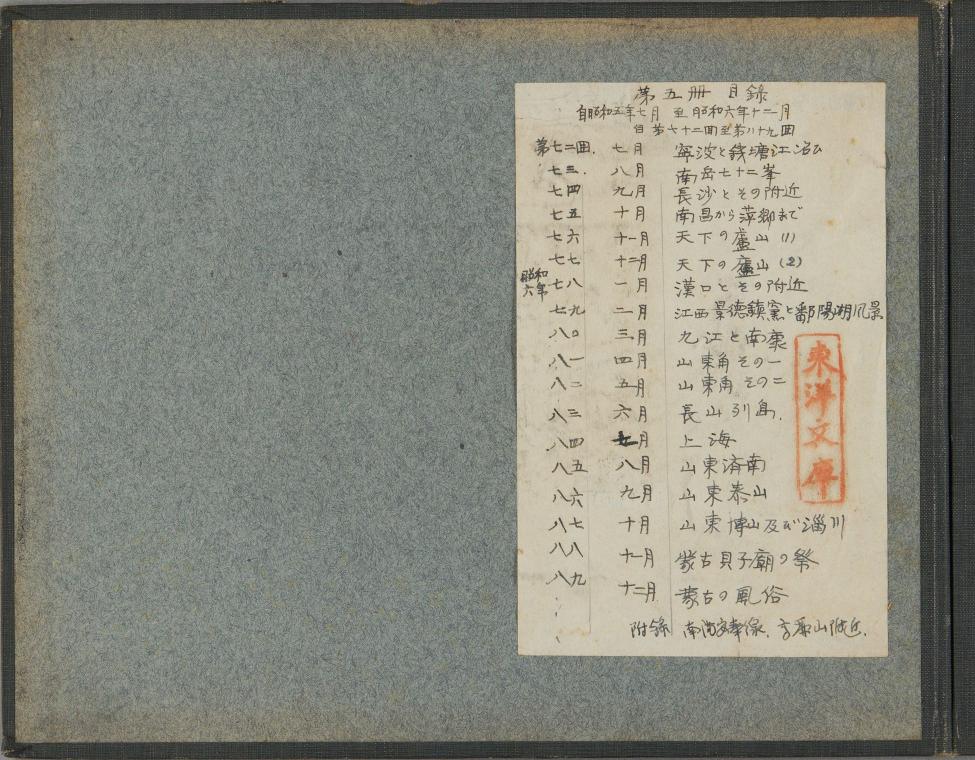 第五册 目録
自昭和五年七月 至昭和六年十二月
自第七十二回至第八十九回
第七二回. 七月 寧波と錢塘江沿ひ
七三. 八月 南岳七十二峯
七四 九月 長沙とその附近
七五 十月 南昌から萍郷まで
七六 十一月 天下の廬山(1)
七七 十二月 天下の廬山(2)
昭和六年 七八 一月 漢口とその附近
七九 二月 江西景徳鎮窯と鄱陽湖風景
八〇 三月 九江と南康
八一 四月 山東角その一
八二 五月 山東角その二
八三 六月 長山列島.
八四 七月 上海
八五 八月 山東済南
八六 九月 山東泰山
八七 十月 山東博山及び淄川
八八 十一月 蒙古貝子廟の祭
八九 十二月 蒙古の風俗
附録 南満 山附近.
東洋文庫